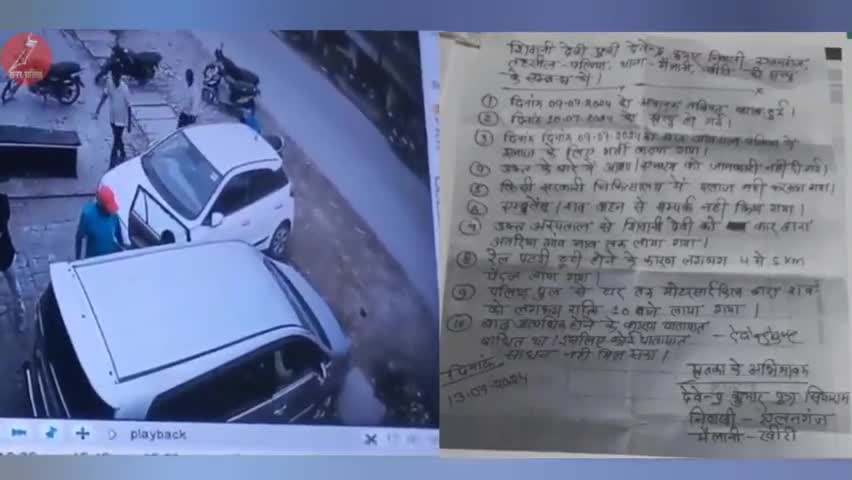 playback
शिवानी देवी पुत्री देवेन्द्र कुमार निवासी
तहसील - पलिया, थाना - मैलानी, खीरी की मृत्यु
के सम्बन्ध में।
① दिनांक 09-07-2024 को अचानक तबियत खराब हुई।
② दिनांक 10-07-2024 को मृत्यु हो गई।
③ दिनांक 09-07-2024 को पलिया में
इलाज के लिए भर्ती कराया गया।
④ उक्त के बारे में आशा को जानकारी नहीं दी गई।
⑤ किसी सरकारी चिकित्सालय में इलाज नहीं कराया गया।
⑥ एम्बुलेंस / शव वाहन से सम्पर्क नहीं किया गया।
⑦ उक्त अस्पताल से शिवानी देवी को कार द्वारा
अतरिया गांव तक लाया गया।
⑧ रेल पटरी टूटी होने के कारण लगभग 4 से 5 km
पैदल लाया गया।
⑨ पलिया पुल से घर तक मोटरसाईकिल द्वारा शव
को लगभग रात्रि 10 बजे लाया गया।
⑩ बाढ़ अत्यधिक होने के कारण यातायात
बाधित था। इसलिए कोई यातायात
साधन नहीं मिल सका।
दिनांक
13-07-2024
मृतका के अभिभावक
देवेन्द्र कुमार पुत्र शिवराम
निवासी -
मैलानी - खीरी